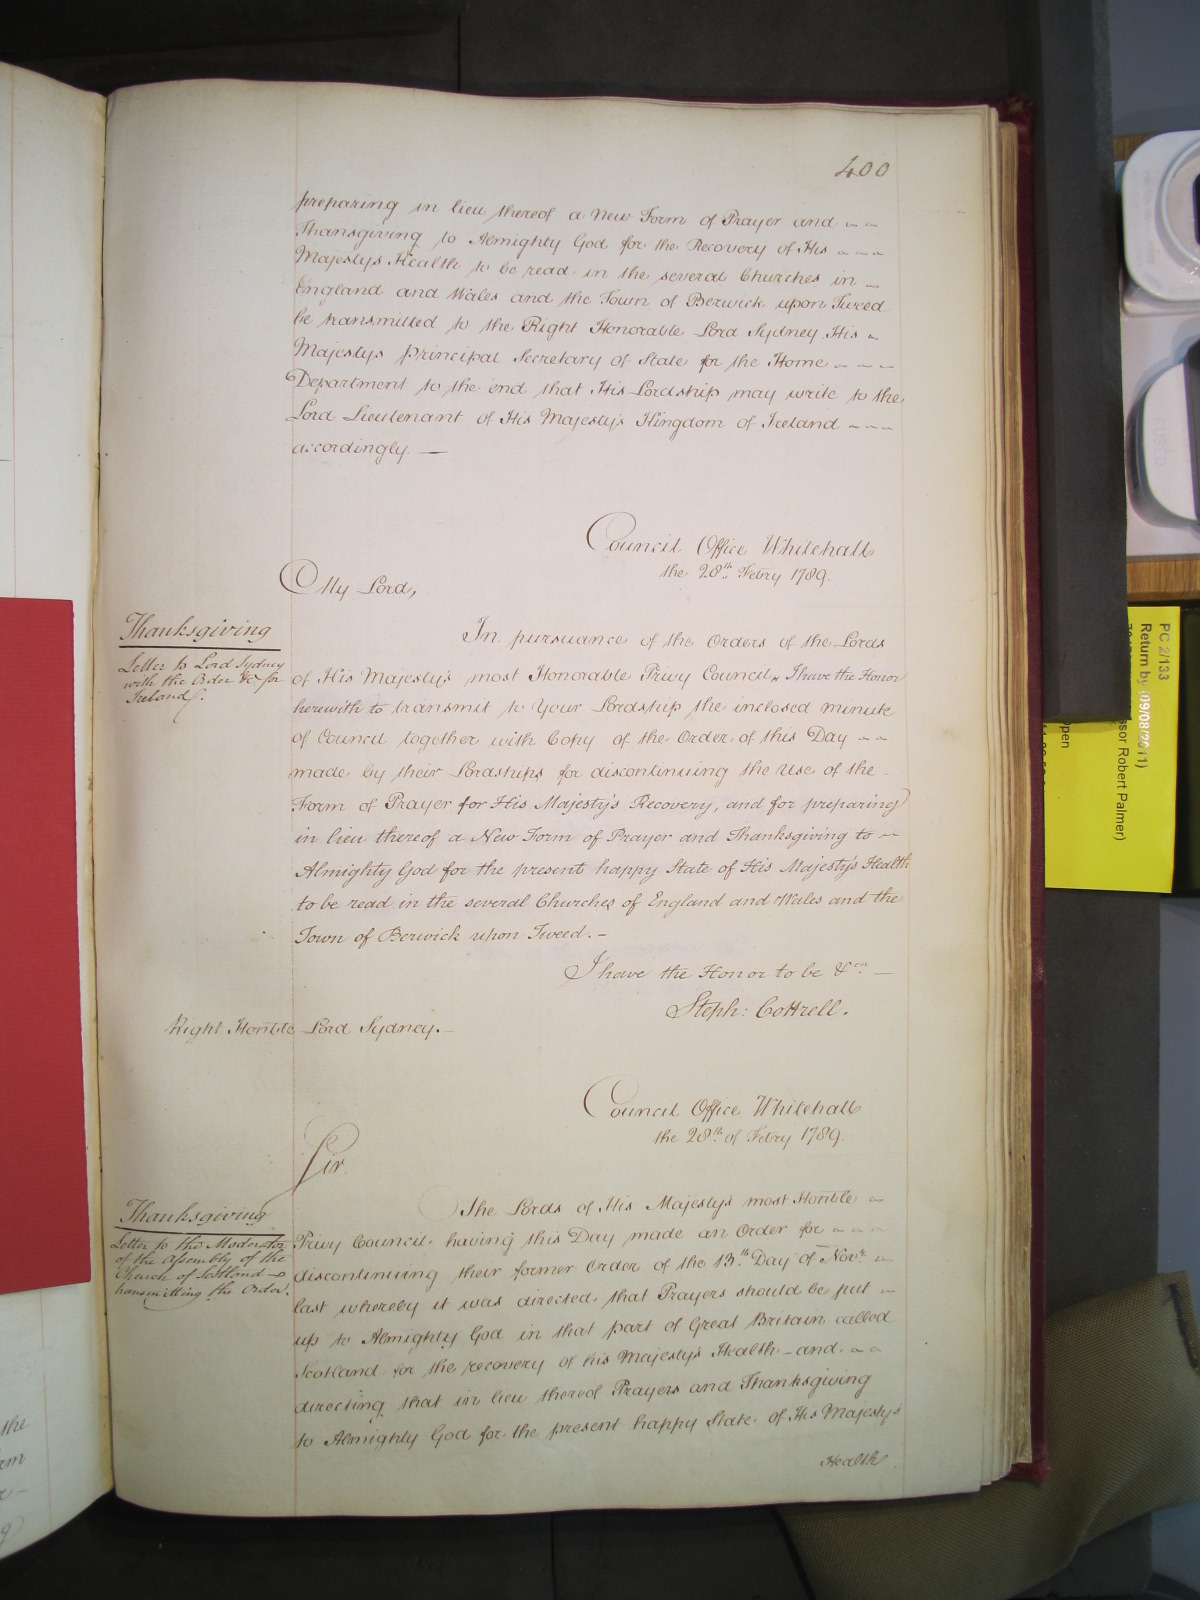 400
preparing in lieu thereof a New Form of Prayer and
Thansgiving to Almighty God for the Recovery of His
Majestys Health to be read in the several Churches in
England and Wales and the Town of Berwick upon Tweed
be transmitted to the Right Honorable Lord Sydney His
Majestys Principal Secretary of State for the Home
Department to the end that His Lordship may write to the
Lord Lieutenant of His Majesty's Kingdom of Ireland
accordingly. —
Council Office Whitehall
the 28th Febry 1789.
My Lord,
Thanksgiving
Letter to Lord Sydney
with the Order &c for
Ireland.
In pursuance of the Orders of the Lords
of His Majesty's most Honorable Privy Council, I have the Honor
herewith to transmit to Your Lordship the inclosed minute
of Council together with Copy of the Order of this Day
made by their Lordships for discontinuing the Use of the
Form of Prayer for His Majesty's Recovery, and for preparing
in lieu thereof a New Form of Prayer and Thanksgiving to
Almighty God for the present happy State of His Majesty's Health
to be read in the several Churches of England and Wales and the
Town of Berwick upon Tweed. –
I have the Honor to be &ca. —
Steph: Cottrell.
Right Honble Lord Sydney. –
Council Office Whitehall
the 28th of Febry 1789.
Sir.
Thanksgiving
Letter to the Moderator
of the Assembly of the
Church of Scotland
transmitting the Order.
The Lords of His Majestys most Honble
Privy Council having this Day made an Order for
discontinuing their former Order of the 13th Day of Novr
last whereby it was directed that Prayers should be put
up to Almighty God in that part of Great Britain called
Scotland for the recovery of his Majesty's Health – and
directing that in lieu thereof Prayers and Thanksgiving
to Almighty God for the present happy State of His Majesty's
Health
PC 2/133
Return by (09/08/2011)
ssor Robert Palmer)
open
the